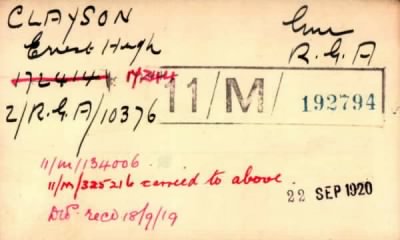 CLAYSON Gnr
Ernest Hugh R.G.A
172414 172414
11/M/ 192794
2/R.G.A/10376
11/M/134006.
11/M/325216 carried to above.
22 SEP 1920
Dis. recd 18/9/19